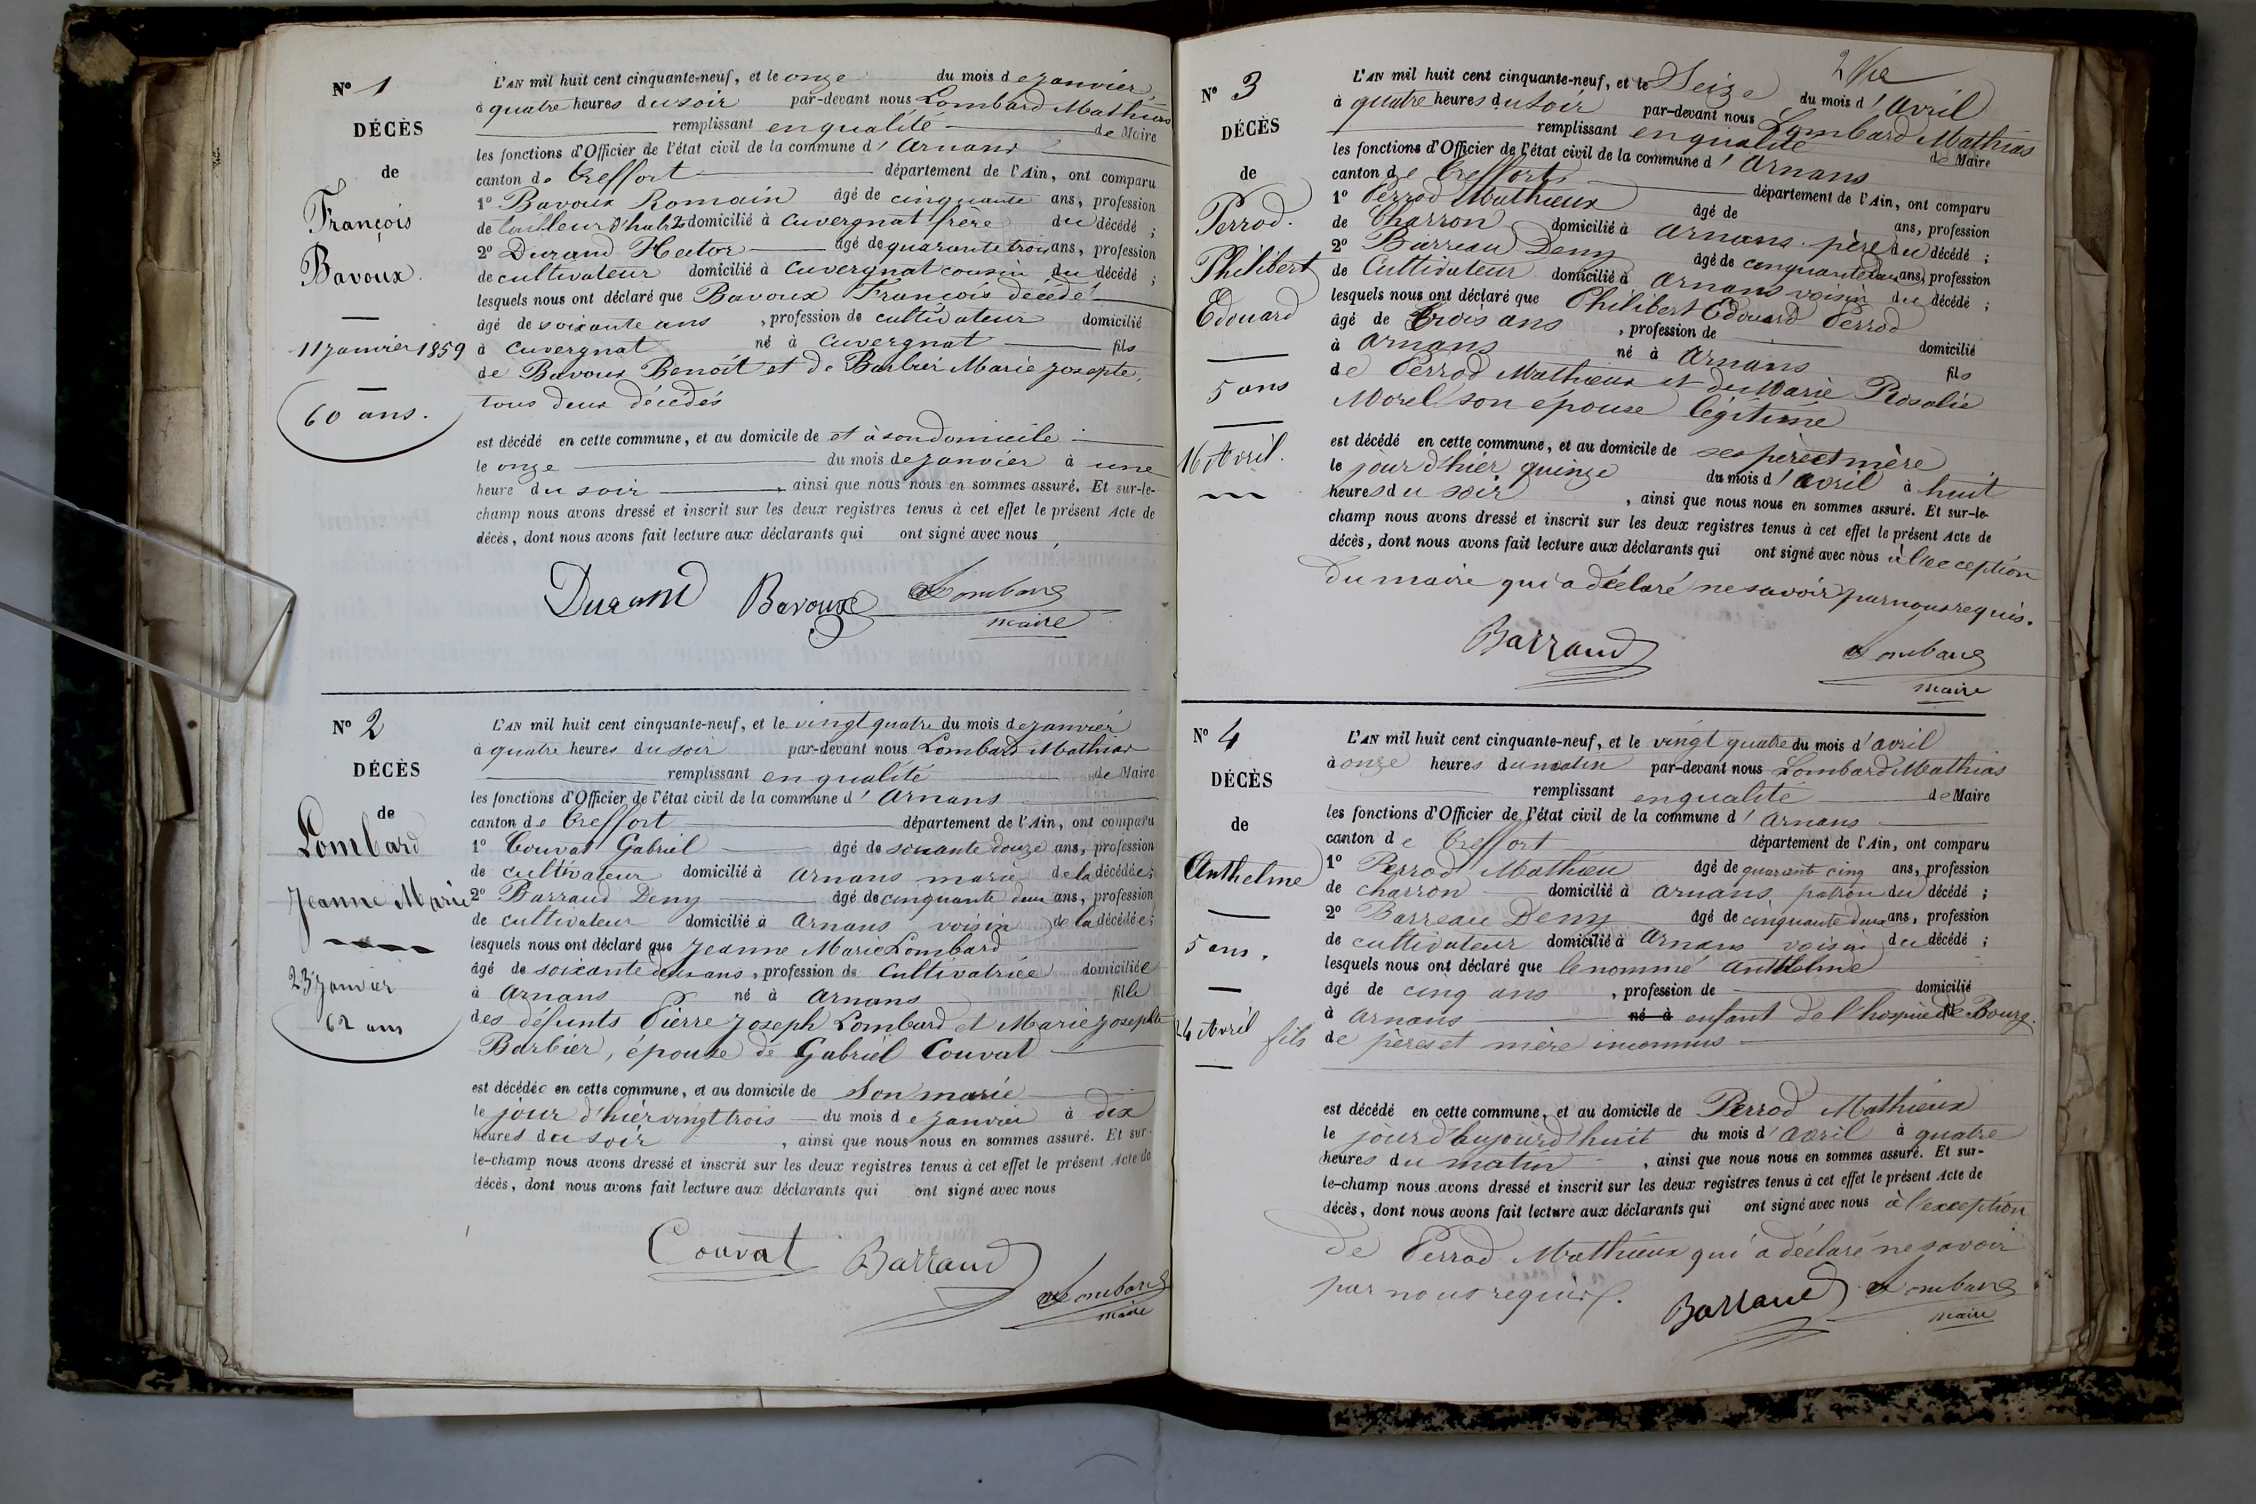 N° 1
DÉCÈS
de
François
Bavoux.
11 janvier 1859
60 ans.
L'AN mil huit cent cinquante-neuf, et le onze du mois de janvier,
à quatre heures du soir par-devant nous Lombard Mathias
remplissant en qualité de Maire
les fonctions d'Officier de l'état civil de la commune d'Arnans
canton de Treffort département de l'Ain, ont comparu
1° Bavoux Romain âgé de cinquante ans, profession
de tailleur d'habits domicilié à Cuvergnat frère du décédé ;
2° Durand Hector âgé de quarante trois ans, profession
de cultivateur domicilié à Cuvergnat cousin du décédé ;
lesquels nous ont déclaré que Bavoux François décédé
âgé de soixante ans , profession de cultivateur domicilié
à Cuvergnat né à Cuvergnat fils
de Bavoux Benoît et de Barbier Marie Josepte,
tous deux décédés
est décédé en cette commune, et au domicile de et à son domicile
le onze du mois de janvier à une
heure du soir , ainsi que nous nous en sommes assuré. Et sur-le-
champ nous avons dressé et inscrit sur les deux registres tenus à cet effet le présent Acte de
décès, dont nous avons fait lecture aux déclarants qui ont signé avec nous
Durand Bavoux Lombard
maire
N° 2
DÉCÈS
de
Lombard
Jeanne Marie
23 janvier
62 ans
L'AN mil huit cent cinquante-neuf, et le vingt quatre du mois de janvier
à quatre heures du soir par-devant nous Lombard Mathias
remplissant en qualité de Maire
les fonctions d'Officier de l'état civil de la commune d'Arnans
canton de Treffort département de l'Ain, ont comparu
1° Couvat Gabriel âgé de soixante douze ans, profession
de cultivateur domicilié à Arnans marie de la décédée ;
2° Barraud Deny âgé de cinquante deux ans, profession
de cultivateur domicilié à Arnans voisin de la décédée ;
lesquels nous ont déclaré que Jeanne Marie Lombard
âgé de soixante deux ans , profession de Cultivatrice domiciliée
à Arnans né à Arnans fille
des défunts Pierre Joseph Lombard et Marie Josephte
Barbier, épouse de Gabriel Couvat
est décédée en cette commune, et au domicile de son marie
le jour d'hier vingt trois du mois de janvier à dix
heures du soir , ainsi que nous nous en sommes assuré. Et sur-
le-champ nous avons dressé et inscrit sur les deux registres tenus à cet effet le présent Acte de
décès, dont nous avons fait lecture aux déclarants qui ont signé avec nous
Couvat Barraud Lombard
maire
N° 3
DÉCÈS
de
Perrod.
Philibert
Edouard
5 ans
16 Avril.
L'AN mil huit cent cinquante-neuf, et le Seize du mois d'Avril
à quatre heures du soir par-devant nous Lombard Mathias
remplissant en qualité de Maire
les fonctions d'Officier de l'état civil de la commune d'Arnans
canton de Treffort département de l'Ain, ont comparu
1° Perrod Mathieux âgé de ans, profession
de Charron domicilié à Arnans père du décédé ;
2° Barreau Deny âgé de cinquante deux ans, profession
de Cultivateur domicilié à Arnans voisin du décédé ;
lesquels nous ont déclaré que Philibert Edouard Perrod
âgé de trois ans , profession de domicilié
à Arnans né à Arnans fils
de Perrod Mathieux et de Marie Rosalie
Morel son épouse légitime
est décédé en cette commune, et au domicile de ses père et mère
le jour d'hier quinze du mois d'avril à huit
heures du soir , ainsi que nous nous en sommes assuré. Et sur-le-
champ nous avons dressé et inscrit sur les deux registres tenus à cet effet le présent Acte de
décès, dont nous avons fait lecture aux déclarants qui ont signé avec nous à l'exception
du maire qui a déclaré ne savoir par nous requis.
Barraud Lombard
maire
N° 4
DÉCÈS
de
Anthelme
5 ans.
24 Avril
L'AN mil huit cent cinquante-neuf, et le vingt quatre du mois d'avril
à onze heures du matin par-devant nous Lombard Mathias
remplissant en qualité de Maire
les fonctions d'Officier de l'état civil de la commune d'Arnans
canton de Treffort département de l'Ain, ont comparu
1° Perrod Mathieu âgé de quarante cinq ans, profession
de charron domicilié à Arnans patron du décédé ;
2° Barreau Deny âgé de cinquante deux ans, profession
de cultivateur domicilié à Arnans voisin du décédé ;
lesquels nous ont déclaré que le nommé Anthelme
âgé de cinq ans , profession de domicilié
à Arnans né à enfant de l'hospice de Bourg.
fils de pères et mère inconnus
est décédé en cette commune, et au domicile de Perrod Mathieux
le jour d'aujourd'huit du mois d'avril à quatre
heures du matin , ainsi que nous nous en sommes assuré. Et sur-
le-champ nous avons dressé et inscrit sur les deux registres tenus à cet effet le présent Acte de
décès, dont nous avons fait lecture aux déclarants qui ont signé avec nous à l'exception
de Perrod Mathieux qui a déclaré ne savoir
par nous requis.
Barraud Lombard
maire